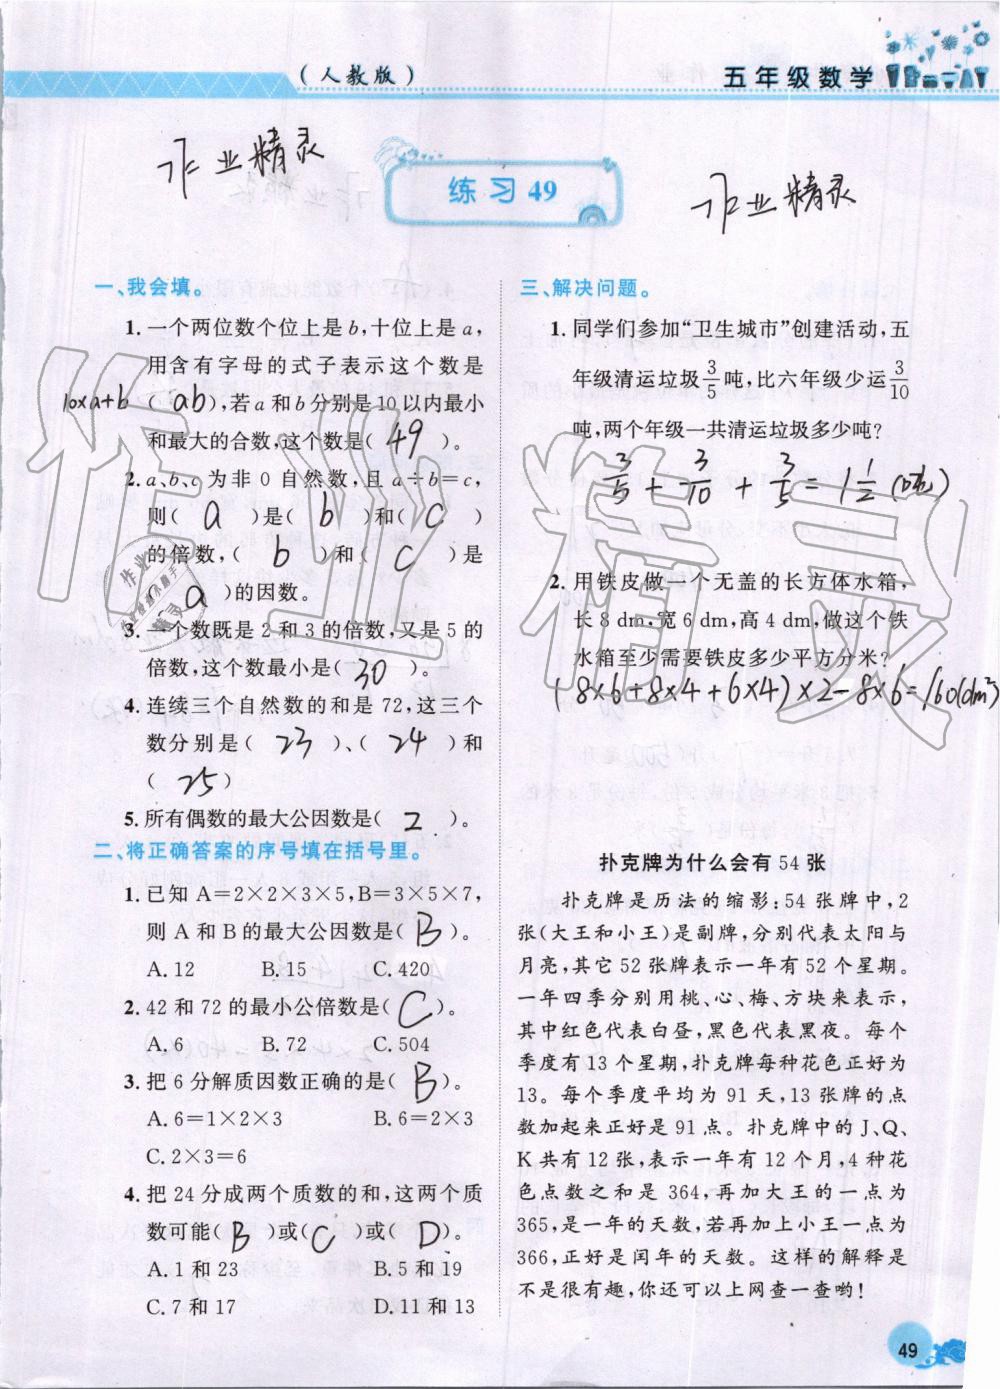 (人教版)
五年级数学
作业精灵
练习 49
作业精灵
一、我会填。
1.一个两位数个位上是b,十位上是a,
用含有字母的式子表示这个数是
10×a+b (ab),若a和b分别是10以内最小
和最大的合数,这个数是( 49 )。
2.a、b、c 为非 0 自然数,且 a÷b=c,
则( a )是( b )和( c )
的倍数,( b )和( c )是
( a )的因数。
3.一个数既是 2 和 3 的倍数,又是 5 的
倍数,这个数最小是( 30 )。
4.连续三个自然数的和是 72,这三个
数分别是( 23 )、( 24 )和
( 25 )
5.所有偶数的最大公因数是( 2 )。
二、将正确答案的序号填在括号里。
1.已知 A=2×2×3×5,B=3×5×7,
则 A 和 B 的最大公因数是( B )。
A.12 B.15 C.420
2.42 和 72 的最小公倍数是( C )。
A.6 B.72 C.504
3.把 6 分解质因数正确的是( B )。
A.6=1×2×3 B.6=2×3
C.2×3=6
4.把 24 分成两个质数的和,这两个质
数可能( B )或( C )或( D )。
A.1 和 23 B.5 和 19
C.7 和 17 D.11 和 13
三、解决问题。
1.同学们参加“卫生城市”创建活动,五
年级清运垃圾3/5吨,比六年级少运3/10
吨,两个年级一共清运垃圾多少吨?
3/5+3/10+3/5=1 1/2(吨)
2.用铁皮做一个无盖的长方体水箱,
长 8 dm,宽 6 dm,高 4 dm,做这个铁
水箱至少需要铁皮多少平方分米?
(8×6+8×4+6×4)×2-8×6=160(dm³)
扑克牌为什么会有 54 张
扑克牌是历法的缩影:54 张牌中,2
张(大王和小王)是副牌,分别代表太阳与
月亮,其它 52 张牌表示一年有 52 个星期。
一年四季分别用桃、心、梅、方块来表示,
其中红色代表白昼,黑色代表黑夜。每个
季度有 13 个星期,扑克牌每种花色正好为
13。每个季度平均为 91 天,13 张牌的点
数加起来正好是 91 点。扑克牌中的 J、Q、
K 共有 12 张,表示一年有 12 个月,4 种花
色点数之和是 364,再加大王的一点为
365,是一年的天数,若再加上小王一点为
366,正好是闰年的天数。这样的解释是
不是很有趣,你还可以上网查一查哟!
49
作业精灵